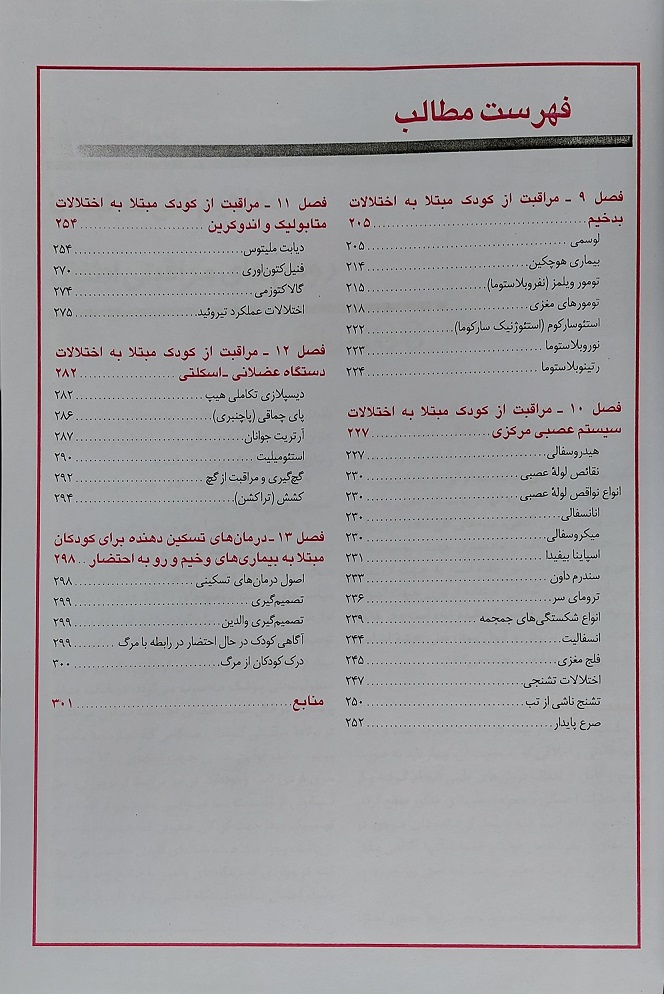 فهرست مطالب
فصل ۹ ـ مراقبت از کودک مبتلا به اختلالات
بدخیم ........ ۲۰۵
لوسمی ........ ۲۰۵
بیماری هوچکین ........ ۲۱۴
تومور ویلمز (نفروبلاستوما) ........ ۲۱۵
تومورهای مغزی ........ ۲۱۸
استئوسارکوم (استئوژنیک سارکوما) ........ ۲۲۲
نوروبلاستوما ........ ۲۲۳
رتینوبلاستوما ........ ۲۲۴
فصل ۱۰ ـ مراقبت از کودک مبتلا به اختلالات
سیستم عصبی مرکزی ........ ۲۲۷
هیدروسفالی ........ ۲۲۷
نقائص لولهٔ عصبی ........ ۲۳۰
انواع نواقص لولهٔ عصبی ........ ۲۳۰
آنانسفالی ........ ۲۳۰
میکروسفالی ........ ۲۳۰
اسپاینا بیفیدا ........ ۲۳۱
سندرم داون ........ ۲۳۳
ترومای سر ........ ۲۳۶
انواع شکستگی‌های جمجمه ........ ۲۳۹
انسفالیت ........ ۲۴۴
فلج مغزی ........ ۲۴۵
اختلالات تشنجی ........ ۲۴۷
تشنج ناشی از تب ........ ۲۵۰
صرع پایدار ........ ۲۵۲
فصل ۱۱ ـ مراقبت از کودک مبتلا به اختلالات
متابولیک و اندوکرین ........ ۲۵۴
دیابت ملیتوس ........ ۲۵۴
فنیل‌کتون‌اوری ........ ۲۷۰
گالاکتوزمی ........ ۲۷۴
اختلالات عملکرد تیروئید ........ ۲۷۵
فصل ۱۲ ـ مراقبت از کودک مبتلا به اختلالات
دستگاه عضلانی ـ اسکلتی ........ ۲۸۲
دیسپلازی تکاملی هیپ ........ ۲۸۲
پای چماقی (پاچنبری) ........ ۲۸۶
آرتریت جوانان ........ ۲۸۷
استئومیلیت ........ ۲۹۰
گچ‌گیری و مراقبت از گچ ........ ۲۹۲
کشش (تراکشن) ........ ۲۹۴
فصل ۱۳ ـ درمان‌های تسکین دهنده برای کودکان
مبتلا به بیماری‌های وخیم و رو به احتضار .. ۲۹۸
اصول درمان‌های تسکینی ........ ۲۹۸
تصمیم‌گیری ........ ۲۹۹
تصمیم‌گیری والدین ........ ۲۹۹
آگاهی کودک در حال احتضار در رابطه با مرگ ........ ۲۹۹
درک کودکان از مرگ ........ ۳۰۰
منابع ........ ۳۰۱